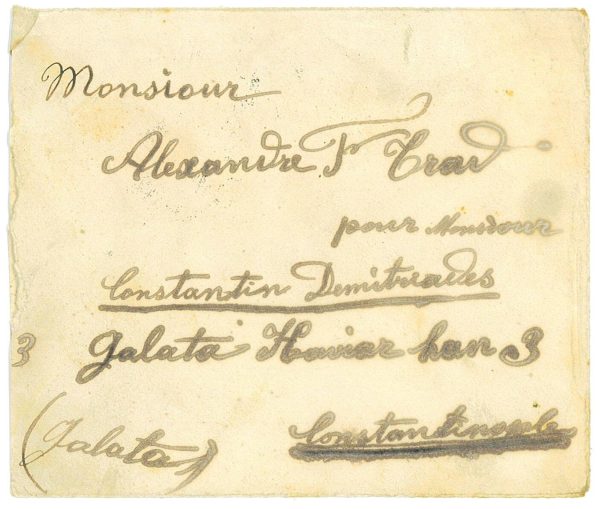 Monsiour
Alexandre F Trad
pour Monsiour
Constantin Demitriades
3 Galata Haviar han 3
(Galata) Constantinople